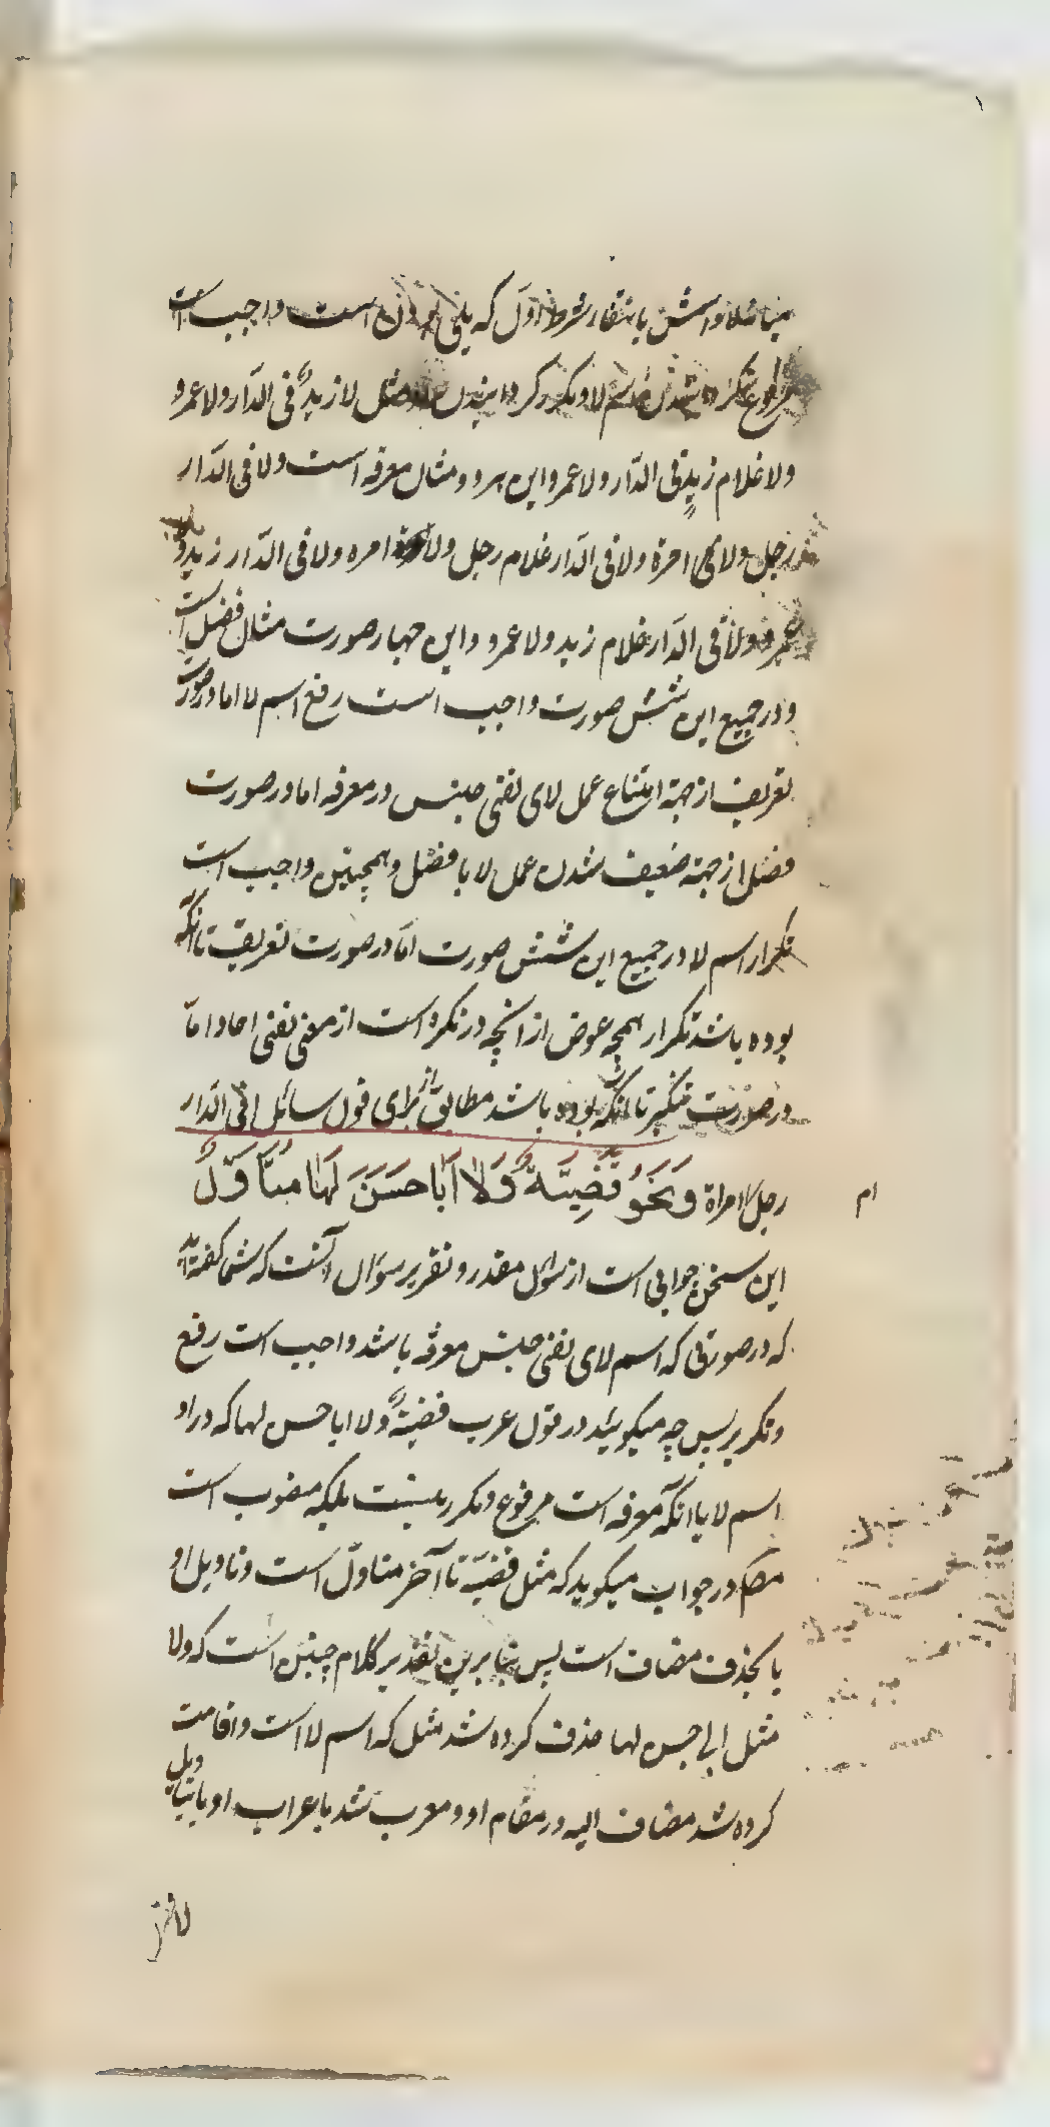 باشد انواعش بانتفاء شرط اول که یلی بودن است واجب است
مرفوع کرده شدن اسم لا و مکرر کرده شدن لا مثل لا زیدٌ فی الدار ولا عمرو
ولا غلام زیدٍ فی الدار ولا عمرو این هر دو مثال معرفه است ولا فی الدار
رجل ولا امرة ولا فی الدار غلام رجل ولا امره ولا فی الدار زید ولا
عمرو ولا فی الدار غلام زید ولا عمرو و این چهار صورت مثال فصل است
و در جمیع این شش صورت واجب است رفع اسم لا اما در صورت
تعریف از جهة امتناع عمل لای نفی جنس در معرفه اما در صورت
فصل از جهة ضعیف شدن عمل لا با فصل و همچنین واجب است
تکرار اسم لا در جمیع این شش صورت اما در صورت تعریف تا آنکه
بوده باشد تکرار همچه عوض از انچه در نکره است از معنی نفی احاد و امّا
در صورت تنکیر تا آنکه بوده باشد مطابق از برای قول سائل افی الدار
رجل ام امراة وَنَحْوُ قَضِیَّةٌ وَلَا اَبَا حَسَنَ لَهَا مُتَاَوَّلٌ
این سخن جوابی است از سؤال مقدر و تقریر سؤال آنست که شما گفته‌اید
که در صورتی که اسم لای نفی جنس معرفه باشد واجب است رفع
و تکریر پس چه میگوئید در قول عرب قضیةٌ ولا ابا حسن لها که در او
اسم لا با آنکه معرفه است مرفوع و مکرر نیست بلکه منصوب است
مصـ در جواب میگوید که مثل قضیّة تا آخر متاوّل است و تاویل او
یا بحذف مضاف است پس بنا برین تقدیر کلام چنین است که ولا
مثل ابی حسن لها حذف کرده شد مثل که اسم لا است و اقامت
کرده شد مضاف الیه در مقام او و معرب شد باعراب او یا بتاویل